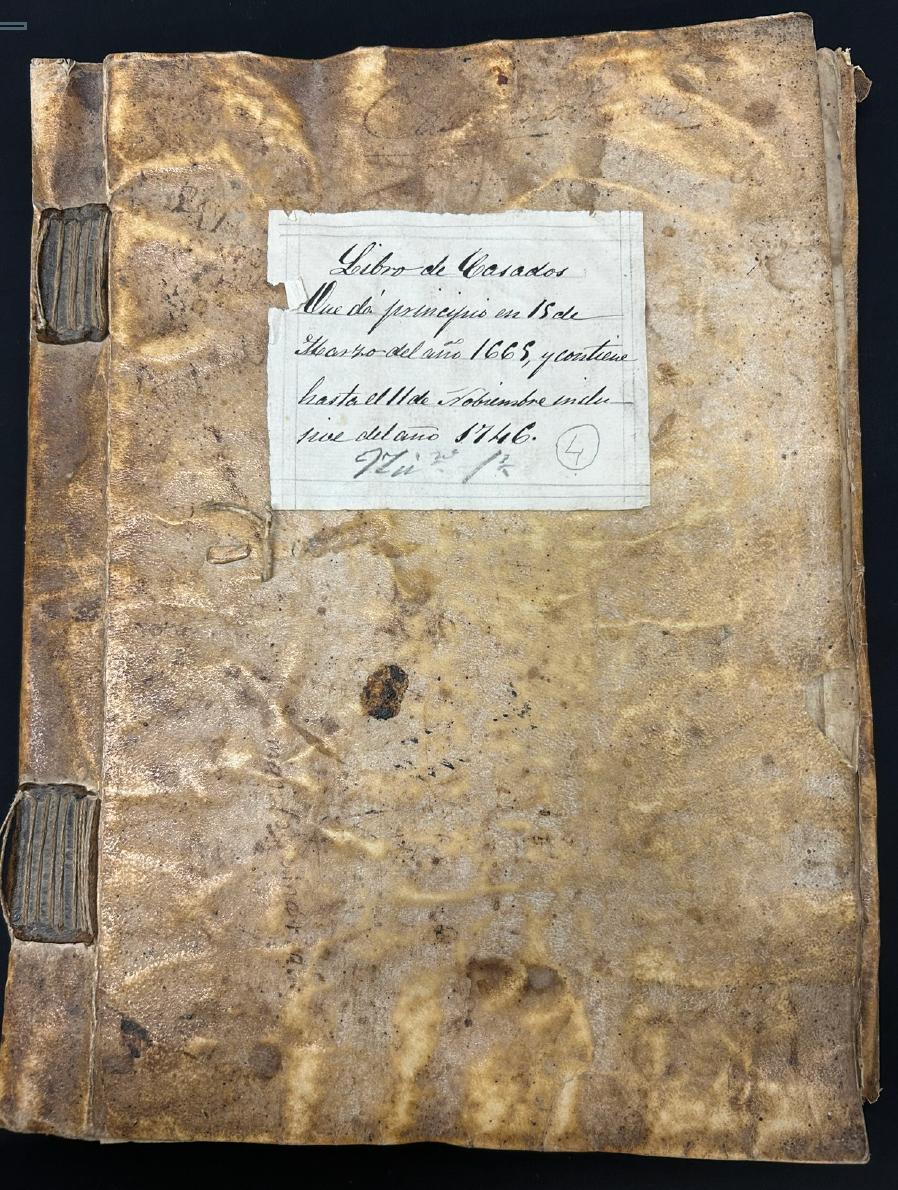 Libro de Casados
Que dá principio en 15 de
Marzo del año 1665, y contiene
hasta el 11 de Nobiembre inclu-
sive del año 1746.
4